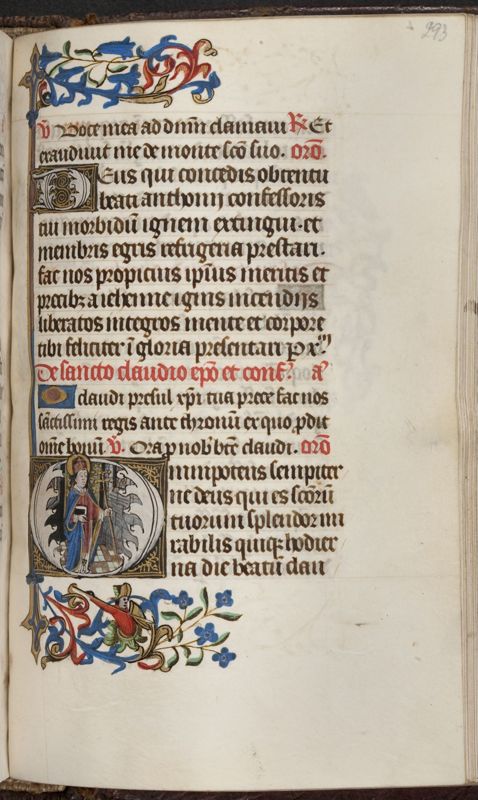 293
v̄ Voce mea ad dn̄m clamaui R̄ Et
exaudiuit me de monte scō suo. orō.
Deus qui concedis obtentu
beati anthonij confessoris
tui morbidū ignem extingui. et
membris egris refrigeria prestari.
fac nos propicius ip̄ius meritis et
precibꝫ a iehenne ignis incendijs
liberatos integros mente et corpore
tibi feliciter ī gloria presentari P xp̄m
De sancto claudio ep̄o et conf. a̅
O claudi presul xp̄i tua prece fac nos
sāctissimi regis ante thronū ex quo pdit
om̄e bonū v̄. Ora p nob̄ bt̄e claudi. orō
Omnipotens sempiter
ne deus qui es scōrū
tuorum splendor mi
rabilis quiqꝫ hodier
na die beatū clau